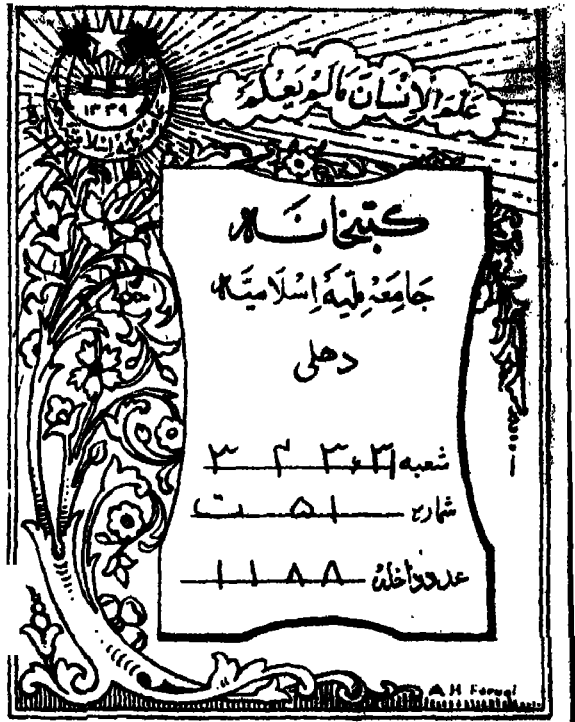 ۱۳۳۹
عَلَّمَ الْاِنْسَانَ مَا لَمْ يَعْلَمْ
كتبخانہ
جامِعَہ مِلیَہ اِسْلَامیَّہ
دھلی
شعبہ
شمارہ ۵۱ ت
عدد داخلہ ۱۱۸۸
A H Faruqi